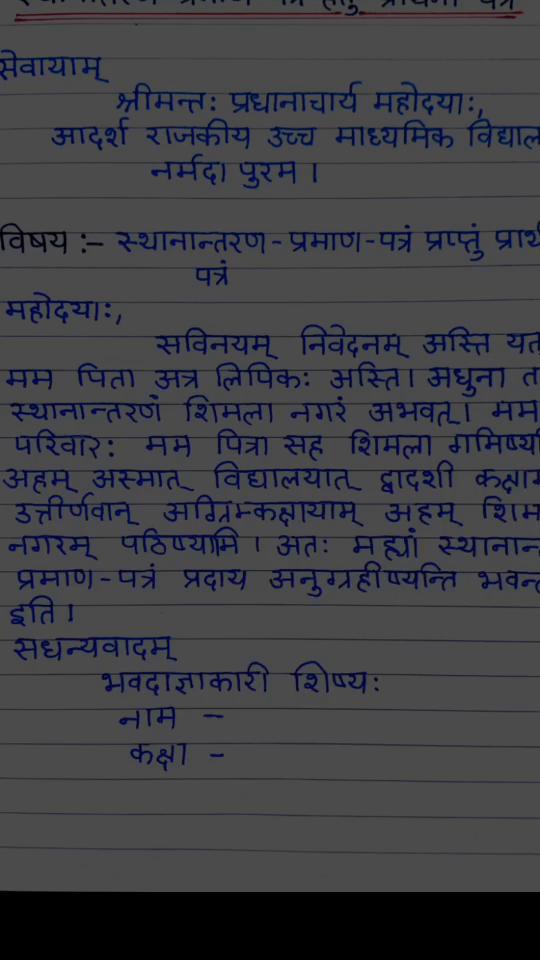 स्थानांतरण प्रमाण पत्र हेतु प्रार्थना पत्र
सेवायाम्
श्रीमन्तः प्रधानाचार्य महोदयाः,
आदर्श राजकीय उच्च माध्यमिक विद्याल
नर्मदा पुरम।
विषय :- स्थानान्तरण-प्रमाण-पत्रं प्रप्तुं प्रार्थ
पत्रं
महोदयाः,
सविनयम् निवेदनम् अस्ति यत
मम पिता अत्र लिपिकः अस्ति। अधुना त
स्थानान्तरणं शिमला नगरं अभवत्। मम
परिवारः मम पित्रा सह शिमला गमिष्य
अहम् अस्मात् विद्यालयात् द्वादशी कक्षाम
उत्तीर्णवान् अग्रिम्कक्षायाम् अहम् शिम
नगरम् पठिष्यामि। अतः मह्यां स्थानान्
प्रमाण-पत्रं प्रदाय अनुग्रहीष्यन्ति भवन्
इति।
सधन्यवादम्
भवदाज्ञाकारी शिष्यः
नाम -
कक्षा -